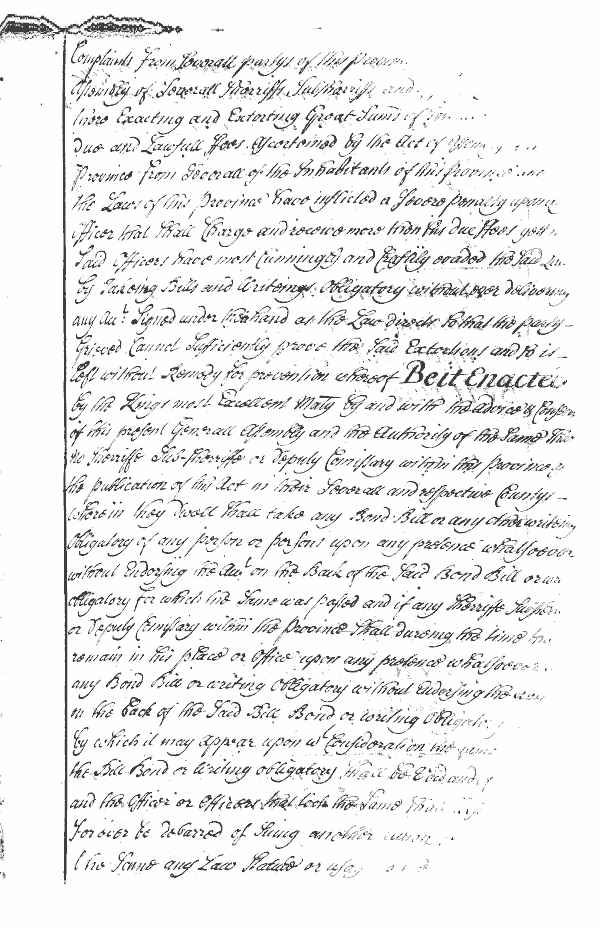 Complaints from Severall partys of this
Assembly of Severall Sherriffs Subsherriffs and
Were Exacting and Extorting Great Sums of
due and Lawfull ffees Ascertained by the Act of
Province from Severall of the Inhabitants of this Province
the Laws of this Province have inflicted a Severe penalty upon
Officer that Shall Charge and receive more then his due ffees yett
Said Officers have most Cunningly and Craftily evaded the Said
by Takeing Bills and Writeings Obligatory without ever delivering
any Acct. Signed under their hand as the Law directs So that the party
Grieved Cannot Sufficiently prove the Said Extortions and So is
Left without Remedy for prevention whereof Beit Enacted
by the Kings most Excellent Maty by and with the advice & Consen
of this present Generall Assembly and the Authority of the Same That
no Sherriffe Sub-Sherriffe or Deputy Comissary within this Province
the publication of this Act in their Severall and respective Countys
Wherein they dwell Shall take any Bond Bill or any other writeing
Obligatory of any person or persons upon any pretence whatsoever
without Endorsing the Acct on the Back of the Said Bond Bill or
Obligatory for which the Same was passed and if any Sherriffe
or Deputy Comissary within the Province Shall dureing the time
remain in his place or Office upon any pretence whatsoever
any Bond Bill or writing Obligatory without Endorsing the
on the Back of the Said Bill Bond or writing Obligato
by which it may Appear upon wt Consideration the same
the Bill Bond or Writing obligatory Shall be Void and
and the Officer or Officers that took the Same Shall
forever be debarred of Suing another
the Same any Law Statute or usag